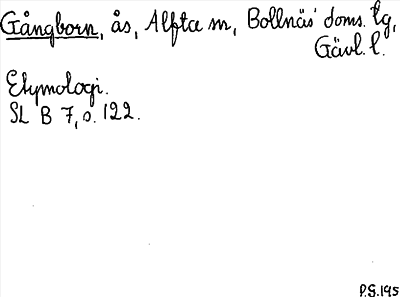 Gångborn, ås, Alfta sn, Bollnäs doms. lg,
Gävl. l.
Etymologi.
SL B 7, s. 122.
P.S. 195